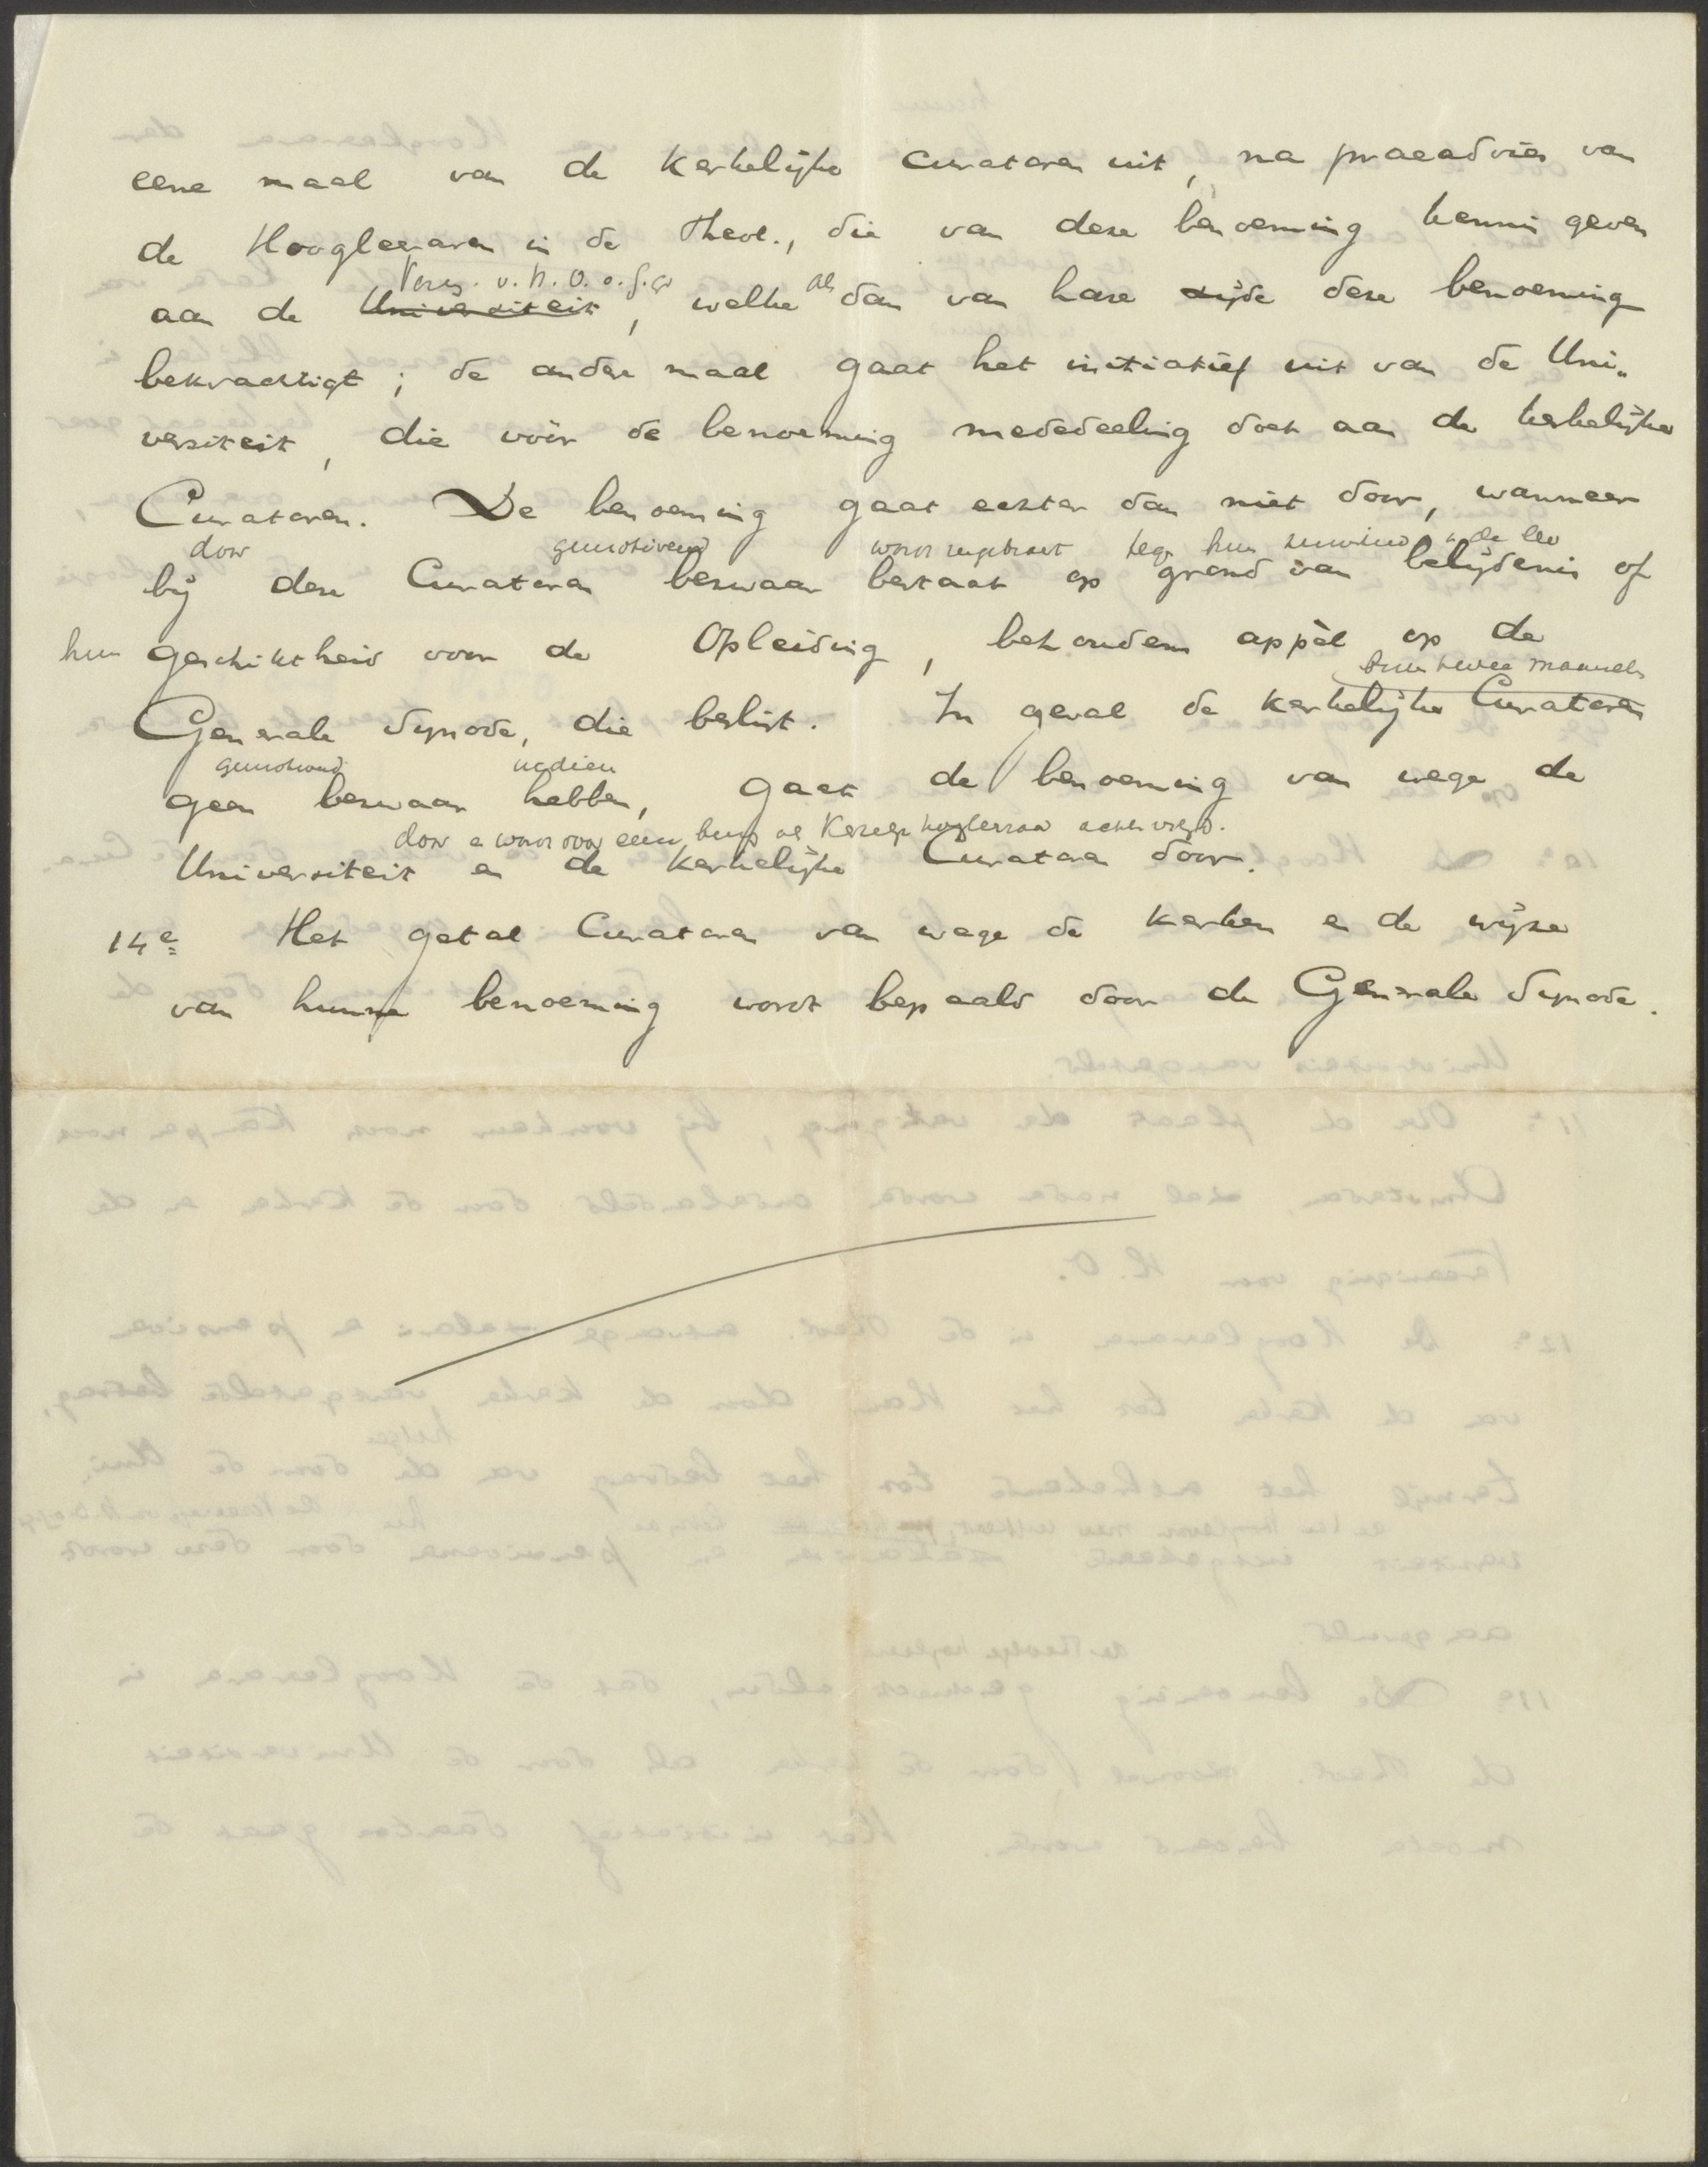 eene maal van de Kerkelijke Curatoren uit, na praeadvies van
de Hoogleeraren in de Theol., die van deze benoeming kennis geven
Vereg. v. H. O. o. G. G.
aan de Universiteit, welke als dan van hare zijde deze benoeming
bekrachtigt; de andere maal gaat het initiatief uit van de Uni„
versiteit, die vóór de benoeming mededeeling doet aan de kerkelijke
Curatoren. De benoeming gaat echter dan niet door, wanneer
door gemotiveerd wordt ingebracht tegen hun in de leer
bij deze Curatoren bezwaar bestaat op grond van belijdenis of
hun geschiktheid voor de Opleiding, behoudens appèl op de
binnen twee maanden
Generale Synode, die beslist. In geval de kerkelijke Curatoren
gemotiveerd indien
geen bezwaar hebben, gaat de benoeming van wege de
door
Universiteit en de Kerkelijke Curatoren door.
14e Het getal Curatoren van wege de kerken en de wijze
van hunne benoeming wordt bepaald door de Generale Synode.